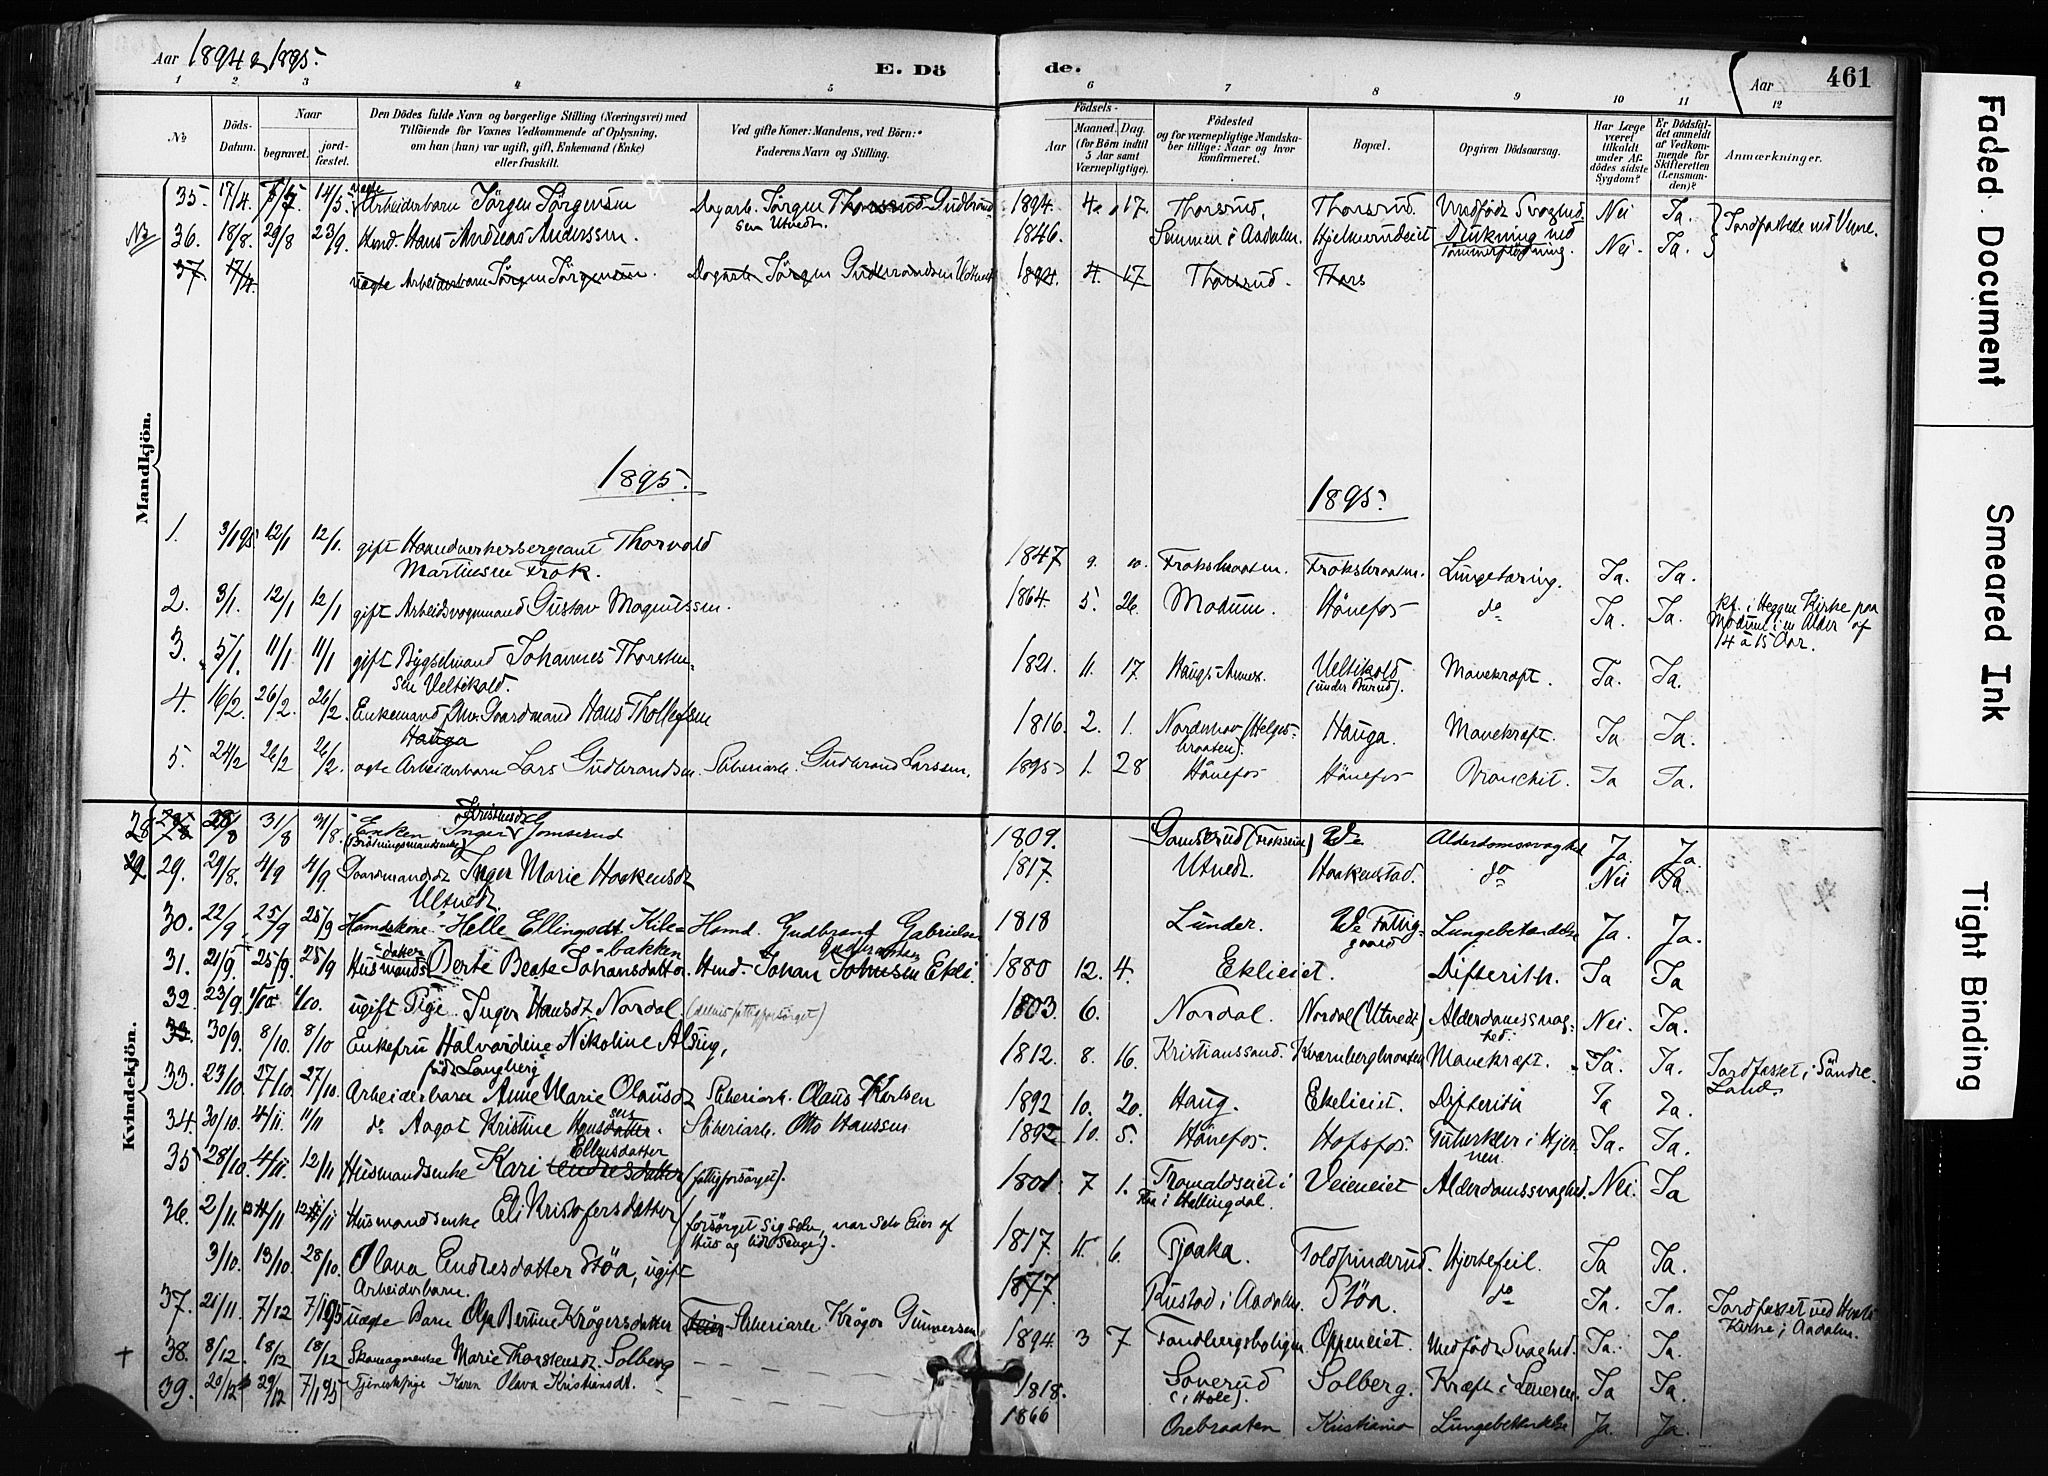 Aar 1894 & 1895.
E. Dö de.
Aar
461
1 2 3 4 5 6 7 8 9 10 11 12
No
Döds-Datum.
Naar
begravet.
jord-fæstet.
Den Dödes fulde Navn og borgerlige Stilling (Næringsvei) med
Tilföiende for Voxnes Vedkommende af Oplysning,
om han (hun) var ugift, gift, Enkemand (Enke)
eller fraskilt.
Ved gifte Koner: Mandens, ved Börn:
Faderens Navn og Stilling.
Födsels-
Aar
Maaned. Dag.
(for Börn indtil
5 Aar samt
Værnepligtige).
Födested
og for værnepligtige Mandska-
ber tillige: Naar og hvor
konfirmeret.
Bopæl.
Opgiven Dödsaarsag.
Har Læge
været
tilkaldt
under Af-
dödes sidste
Sygdom?
Er Dödsfal-
det anmeldt
af Vedkom-
mende for
Skifteretten
(Lensman-
den)?
Anmærkninger.
Mandkjön.
35. 17/4. 14/5. uægte Arbeiderbarn Jörgen Jörgensen Dagarb. Jörgen Thorsrud Gudbrand-
sen Utvedt. 1894. 4. 17. Thorsrud. Thorsrud. Medfödt Svaghed. Nei Ja. Jordfæstede ved Viker.
36. 18/8. 29/8 23/9. Hmd. Hans Andreas Anderssen. 1846. Semmen i Aadalen. Hjelmerudeiet Drukning ved
Tömmerflödning. Nei. Ja.
37. 17/4. uægte Arbeiderbarn Jörgen Jörgensen. Dagarb. Jörgen Gudbrandsen Utvedt 1894. 4. 17 Thorsrud. Thors
1895.
1895.
1. 3/1 95 12/1 12/1. gift Haandverkersergeant Thorvald
Martinsen Frok. 1847 9. 10. Froksbraaten. Froksbraaten. Lungetæring. Ja. Ja.
2. 3/1. 12/1 12/1 gift Arbeidsvognmand Gustav Magnussen. 1864. 5. 26. Modum. Hönefos do Ja. Ja. kf. i Heggen Kirke paa
Modum i en Alder af
14 à 15 Aar.
3. 5/1. 11/1 11/1 gift Bygselmand Johannes Thorsten-
sen Veltikold. 1821. 11. 17. Haugs Annex. Veltikold
(under Burud). Marekræft. Ja. Ja.
4. 16/2. 26/2. 26/2. Enkemand fhv. Gaardmand Hans Thollefsen
Hauga 1816. 2. 1. Norderhov (Helges-
braaten). Hauga. Mavekræft. Ja Ja.
5. 24/2 26/2 26/2. ægte Arbeiderbarn Lars Gudbrandsen. Sliberiarb. Gudbrand Larssen. 1895 1. 28 Hönefos Hönefos Bronchit. Ja Ja.
Kvindekjön.
28 28/8 31/8 31/8. Enken Inger Kristensdt Gomserud
1809. Gomserud (Frokseiet) do Alderdomssvaghed Ja Ja.
29 29. 29/8. 4/9 4/9. Gaardmandsdt Inger Marie Haakensdt
Utvedt. 1817. Utvedt. Haakenstad. do Nei Ja.
30. 22/9 25/9 25/9 Hamdskone Helle Ellingsdt Kile-
bakken Hsmd. Gudbrand Gabrielsen 1818 Lunder. do Fattig-
gaard Lungebetændelse Ja. Ja.
31. 21/9. 25/9. 25/9 Husmandsdatter Berte Beate Johansdatter Hmd. Johan Gudbrandsen Johnsen Ekli. 1880 12. 4. Eklieiet. Difterith. Ja Ja
32. 23/9. 1/10. 1/10. ugift Pige Inger Hansdt Nordal. (delvis fattigforsörget) 1803. 6. Nordal. Nordal (Utvedt) Alderdomssvag-
hed. Nei. Ja.
33. 30/9. 8/10. 8/10 Enkefru Halvardine Nikoline Alsing,
född Langberg 1812. 8. 16. Kristianssand. Kvernbergbraaten Mavekræft. Ja. Ja. Jordfæstet i Söndre
Land.
33. 23/10. 27/10. 27/10. Arbeiderbarn Anne Marie Olausdt Sliberiarb. Olaus Karlsen 1892 10. 20. Haug. Ekelieiet. Difterith Ja Ja.
34. 30/10. 4/11. 11/11 do Aagot Kristine Hansdatter. Sliberiarb. Otto Hanssen 1892 10. 5. Hönefos. Hofsfos. Tuberkler i Hjer-
nen. Ja. Ja.
35 28/10. 4/11. 12/11 Husmandsenke Kari Ellensdatter Endresdatter (fattigforsörget). 1801. 7 1. Tromaldseiet i
Flaa i Hallingdal. Veieneiet Alderdomssvaghed. Nei. Ja
36. 2/11. 11/11 Husmandsenke Eli Kristofersdatter (forsörget sig selv, var selv Eier af
Hus og lidt Penge). 1817. 11. 6. Gjaaka. Toldpinderud. Hjertefeil. Ja Ja.
3/10. 13/10. 28/10. Olava Endresdatter Stöa, ugift
Arbeiderbarn. 1877. Rustad i Aadalen. Stöa. do Ja. Ja. Jordfæstet ved Hvals
Kirke i Aadalen.
37. 21/11. 7/12 7/1 95 uægte Barn Olga Bertine Krögersdatter Sliberiarb. Kröger Gunversen 1894 3 7 Tandbergsboligen Oppeneiet. Medfödt Svaghed. Ja. Ja.
38. 8/12. 18/12 18/12 Skomagerenke Marie Thorstensdt. Solberg 1818. Sonerud
(i Hole). Solberg. Kræft i Leveren. Ja Ja.
39. 20/12 29/12 7/1 95 Tjenestepige Karen Olava Kristiansdt. 1866 Orebraaten Kristiania Lungebetændelse Ja. Ja.
Faded Document
Smeared Ink
Tight Binding